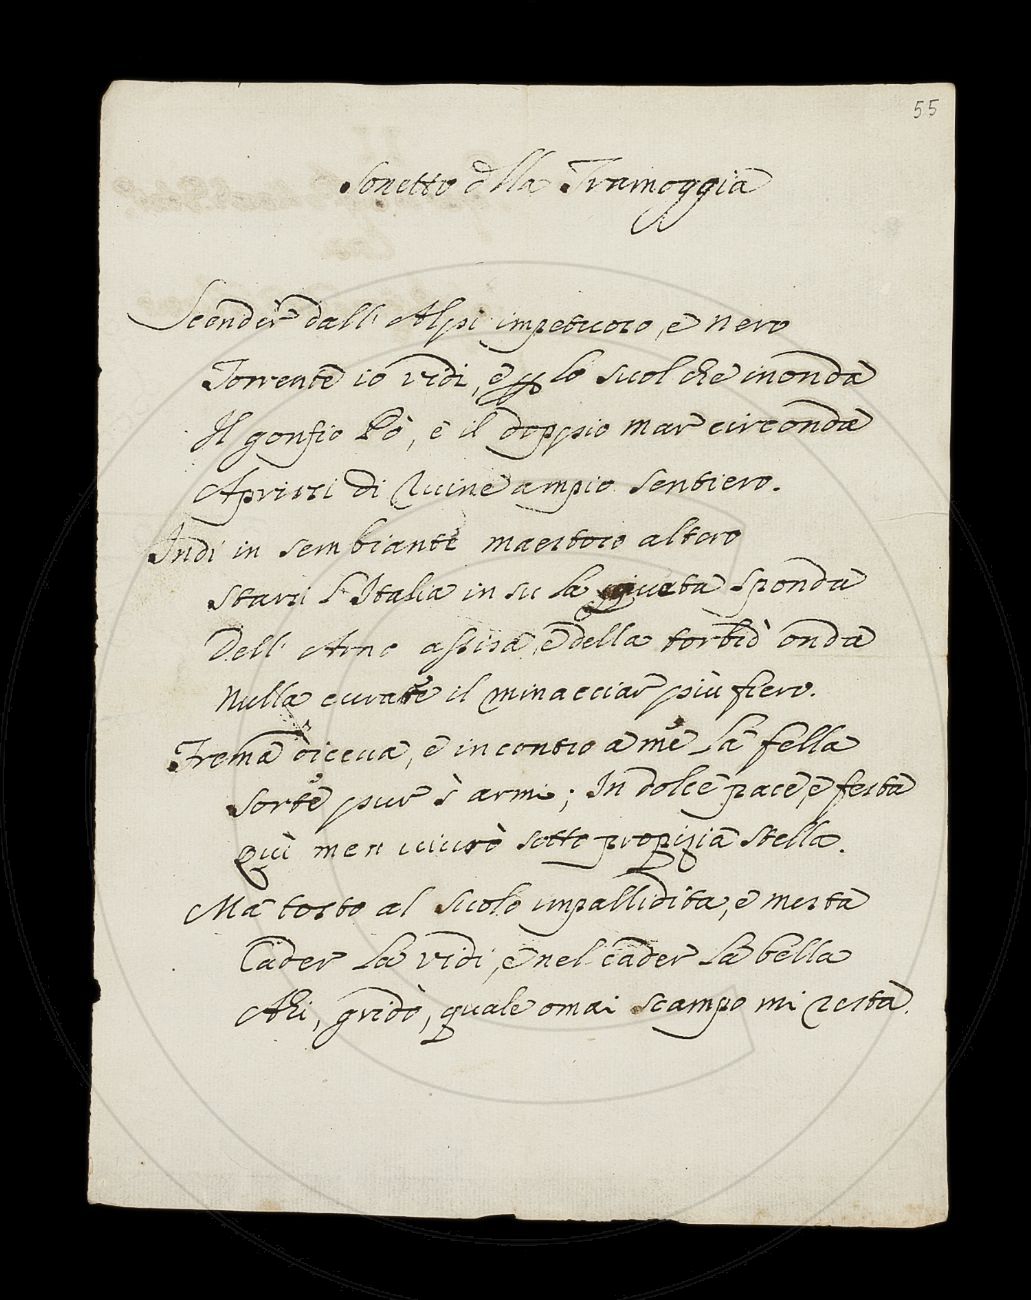 55
Sonetto della Tramoggia
Scender dall' Alpi impetuoso, e nero
Torrente io vidi, e p lo suol che inonda
Il gonfio Pò, e il doppio mar circonda
Aprirsi di Ruine ampio sentiero.
Indi in sembiante maestoso altero
starsi l'Italia in su la quieta sponda
Dell' Arno assisa, e della torbid' onda
Nulla curare il minacciar più fiero.
Trema diceva, e incontro a me la fella
sorte pur s' armi; In dolce pace, e festa
quì men viverò sotto propizia stella.
Ma tosto al suolo impallidita, e mesta
Cader la vidi, e nel cader la bella
Ahi, gridò, quale omai scampo mi resta.